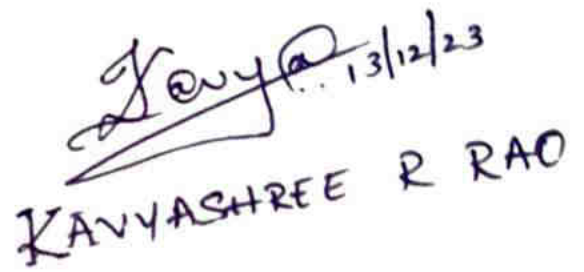 Kavya 13/12/23
KAVYASHREE R RAO